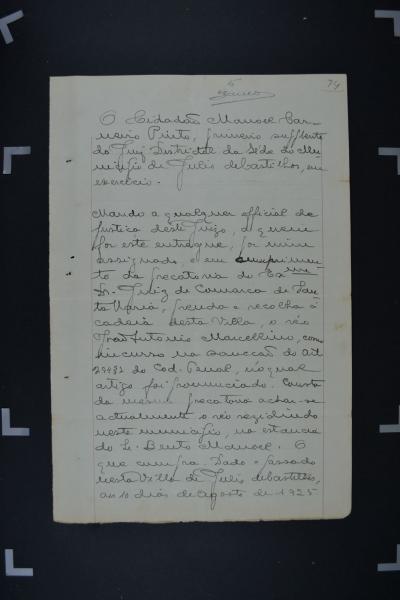 74
O Cidadão Manoel Car-
neiro Pinto, primeiro supplente
do Juiz Districtal da Séde do Mu-
nicipio de Julio de Castilhos, em
exercicio.
Mando a qualquer official de
justiça deste Juizo, a quem
for este entregue, por mim
assignado, e em cumprimen-
to da precatoria do
Dr. Juiz de Comarca de San-
ta Maria, prenda e recolha á
cadeia desta Villa, o réo
Antonio Marcellino, como
incurso na sancção do Art
do Cod. Penal, n'o qual
artigo foi pronunciado. Consta
da mesma precatoria achar-se
actualmente o réo rezidindo
neste municipio, na estancia
do Sr. Bento Manoel. O
que cumpra. Dado e passado
nesta Villa de Julio de Castilhos,
aos 10 dias de Agosto de 1925